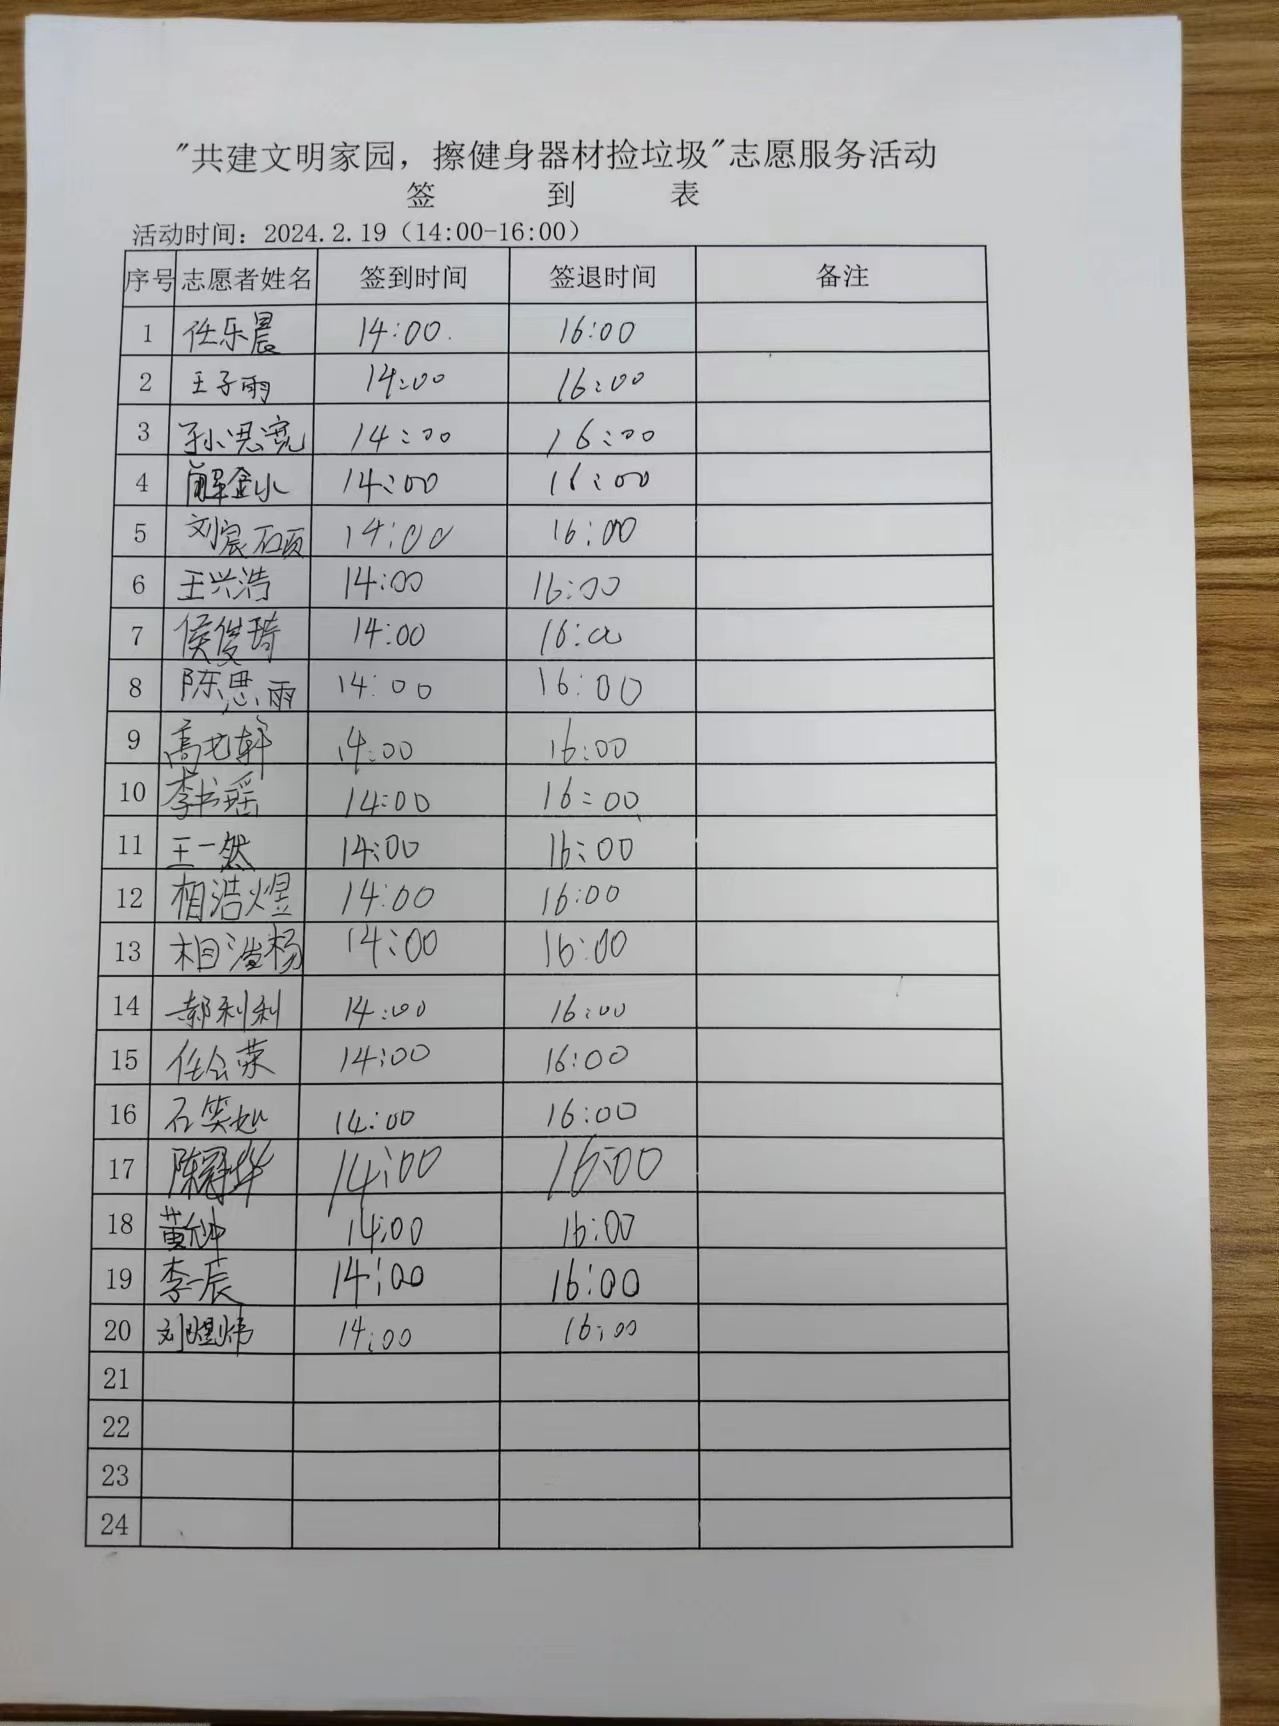 "共建文明家园，擦健身器材捡垃圾"志愿服务活动
签 到 表
活动时间：2024.2.19（14:00-16:00）
序号 志愿者姓名 签到时间 签退时间 备注
1 任乐晨 14:00 16:00
2 王子雨 14:00 16:00
3 孙思宽 14:00 16:00
4 解金小 14:00 16:00
5 刘宸硕 14:00 16:00
6 王兴浩 14:00 16:00
7 侯俊琦 14:00 16:00
8 陈思雨 14:00 16:00
9 高艺轩 14:00 16:00
10 李书瑶 14:00 16:00
11 王一然 14:00 16:00
12 相浩煜 14:00 16:00
13 相浩杨 14:00 16:00
14 郝利利 14:00 16:00
15 任会荣 14:00 16:00
16 石笑如 14:00 16:00
17 陈冠华 14:00 16:00
18 黄 14:00 16:00
19 李一辰 14:00 16:00
20 刘煜炜 14:00 16:00
21
22
23
24